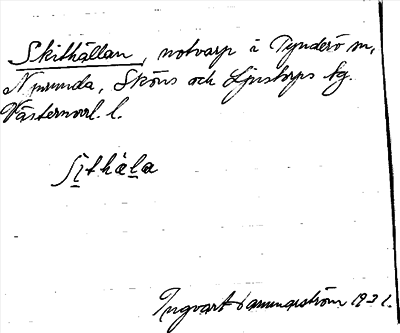 Skithällan, notvarp i Tynderö sn,
Njurunda, Sköns och Ljustorps tg.
Västernorrl. l.
ʃìthàla
Ingvart Hammarström 1931.